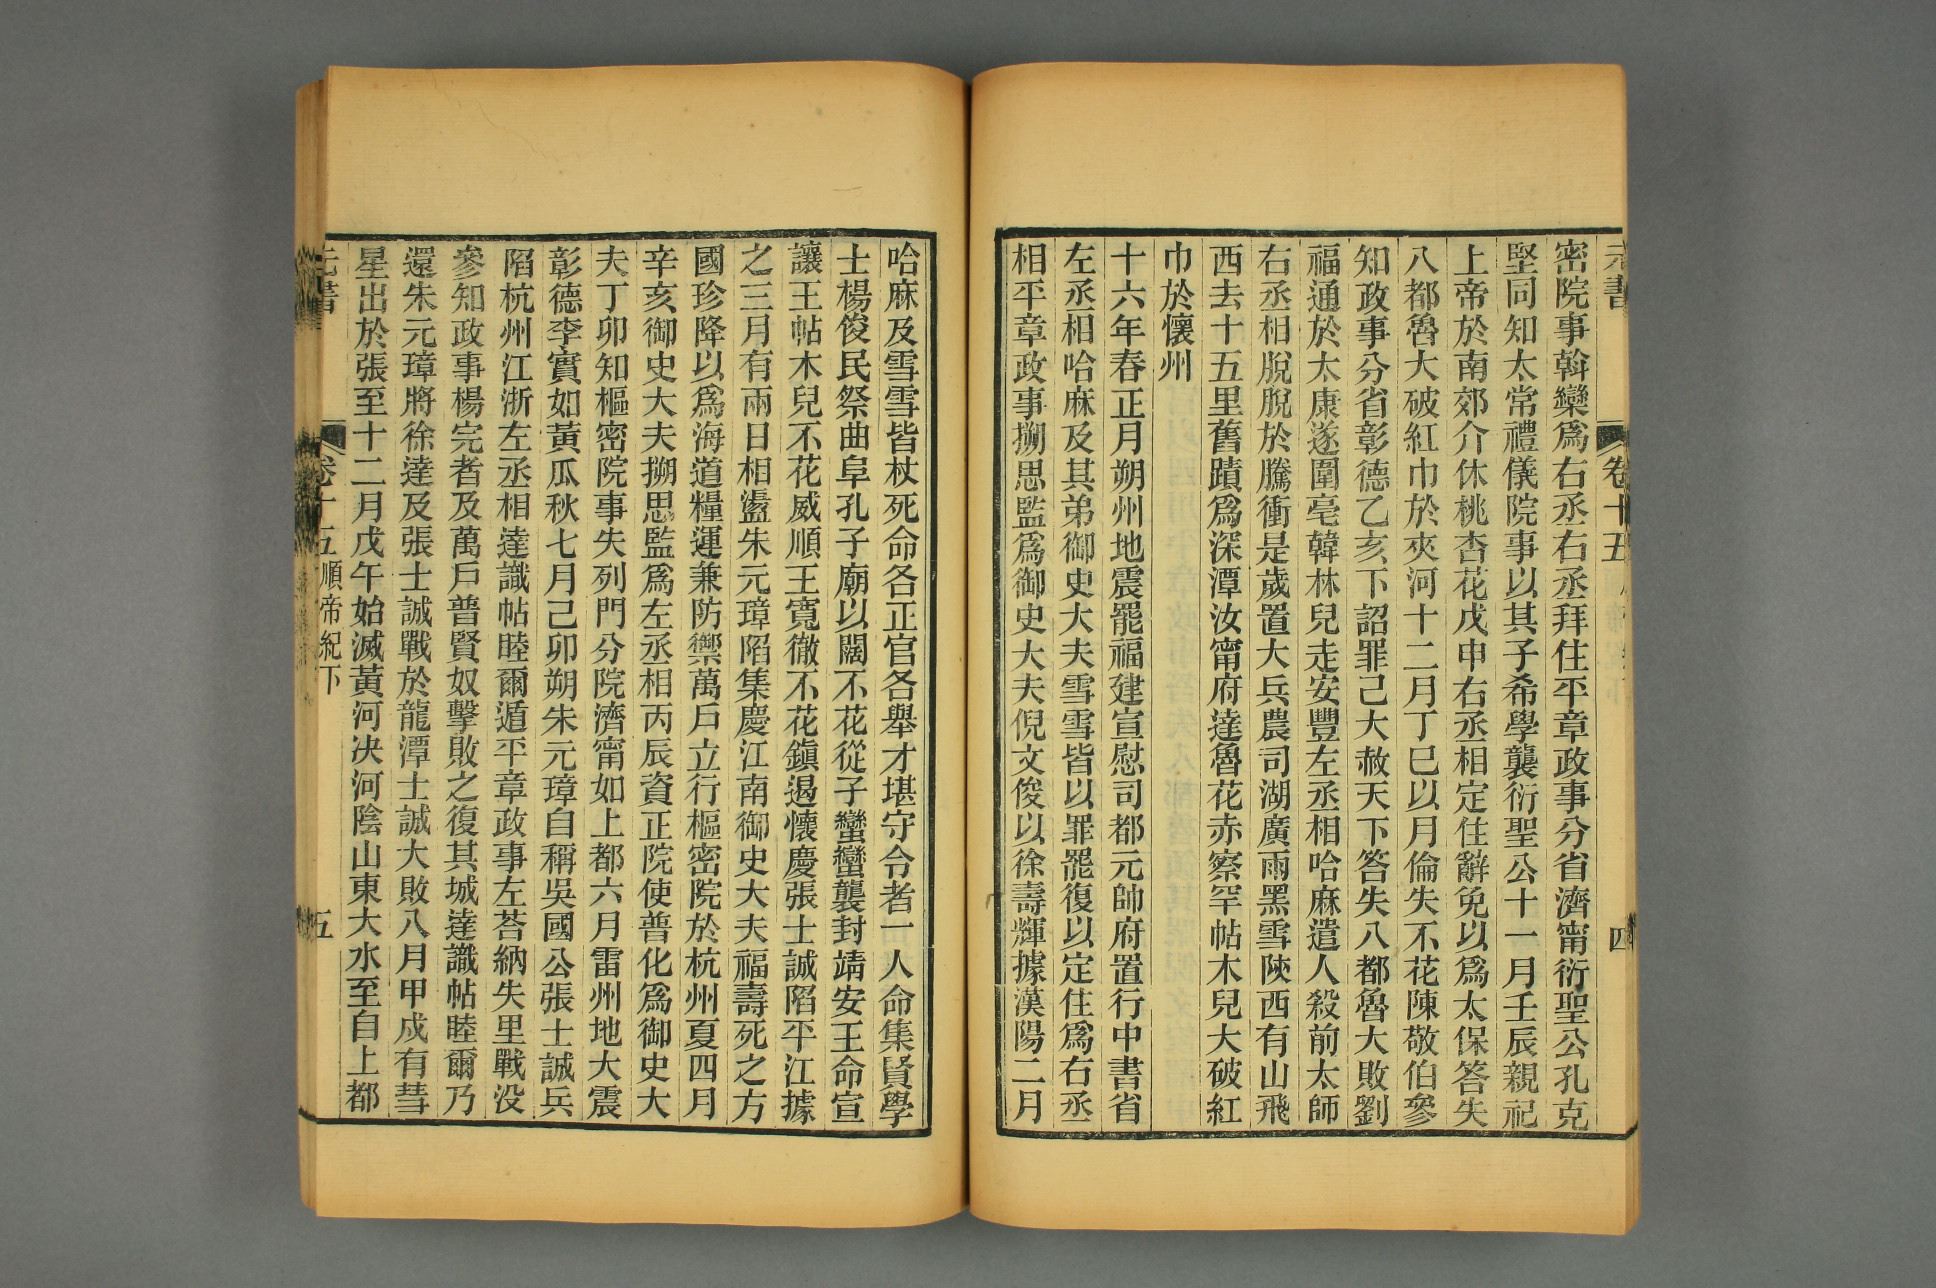 元書 卷十五 四
密院事斡欒爲右丞右丞拜住平章政事分省濟甯衍聖公孔克
堅同知太常禮儀院事以其子希學襲衍聖公十一月壬辰親祀
上帝於南郊介休桃杏花戊申右丞相定住辭免以爲太保答失
八都魯大破紅巾於夾河十二月丁巳以月倫失不花陳敬伯參
知政事分省彰德乙亥下詔罪己大赦天下答失八都魯大敗劉
福通於太康遂圍亳韓林兒走安豐左丞相哈麻遣人殺前太師
右丞相脫脫於騰衝是歲置大兵農司湖廣雨黑雪陝西有山飛
西去十五里舊蹟爲深潭汝甯府達魯花赤察罕帖木兒大破紅
巾於懷州
十六年春正月朔州地震罷福建宣慰司都元帥府置行中書省
左丞相哈麻及其弟御史大夫雪雪皆以罪罷復以定住爲右丞
相平章政事搠思監爲御史大夫倪文俊以徐壽輝據漢陽二月
哈麻及雪雪皆杖死命各正官各舉才堪守令者一人命集賢學
士楊俊民祭曲阜孔子廟以闊不花從子蠻蠻襲封靖安王命宣
讓王帖木兒不花威順王寬徹不花鎭遏懷慶張士誠陷平江據
之三月有兩日相盪朱元璋陷集慶江南御史大夫福壽死之方
國珍降以爲海道糧運兼防禦萬戶立行樞密院於杭州夏四月
辛亥御史大夫搠思監爲左丞相丙辰資正院使普化爲御史大
夫丁卯知樞密院事失列門分院濟甯如上都六月雷州地大震
彰德李實如黃瓜秋七月己卯朔朱元璋自稱吳國公張士誠兵
陷杭州江浙左丞相達識帖睦爾遁平章政事左荅納失里戰没
參知政事楊完者及萬戶普賢奴擊敗之復其城達識帖睦爾乃
還朱元璋將徐達及張士誠戰於龍潭士誠大敗八月甲戌有彗
星出於張至十二月戊午始滅黃河决河陰山東大水至自上都
元書 卷十五 順帝紀下 五